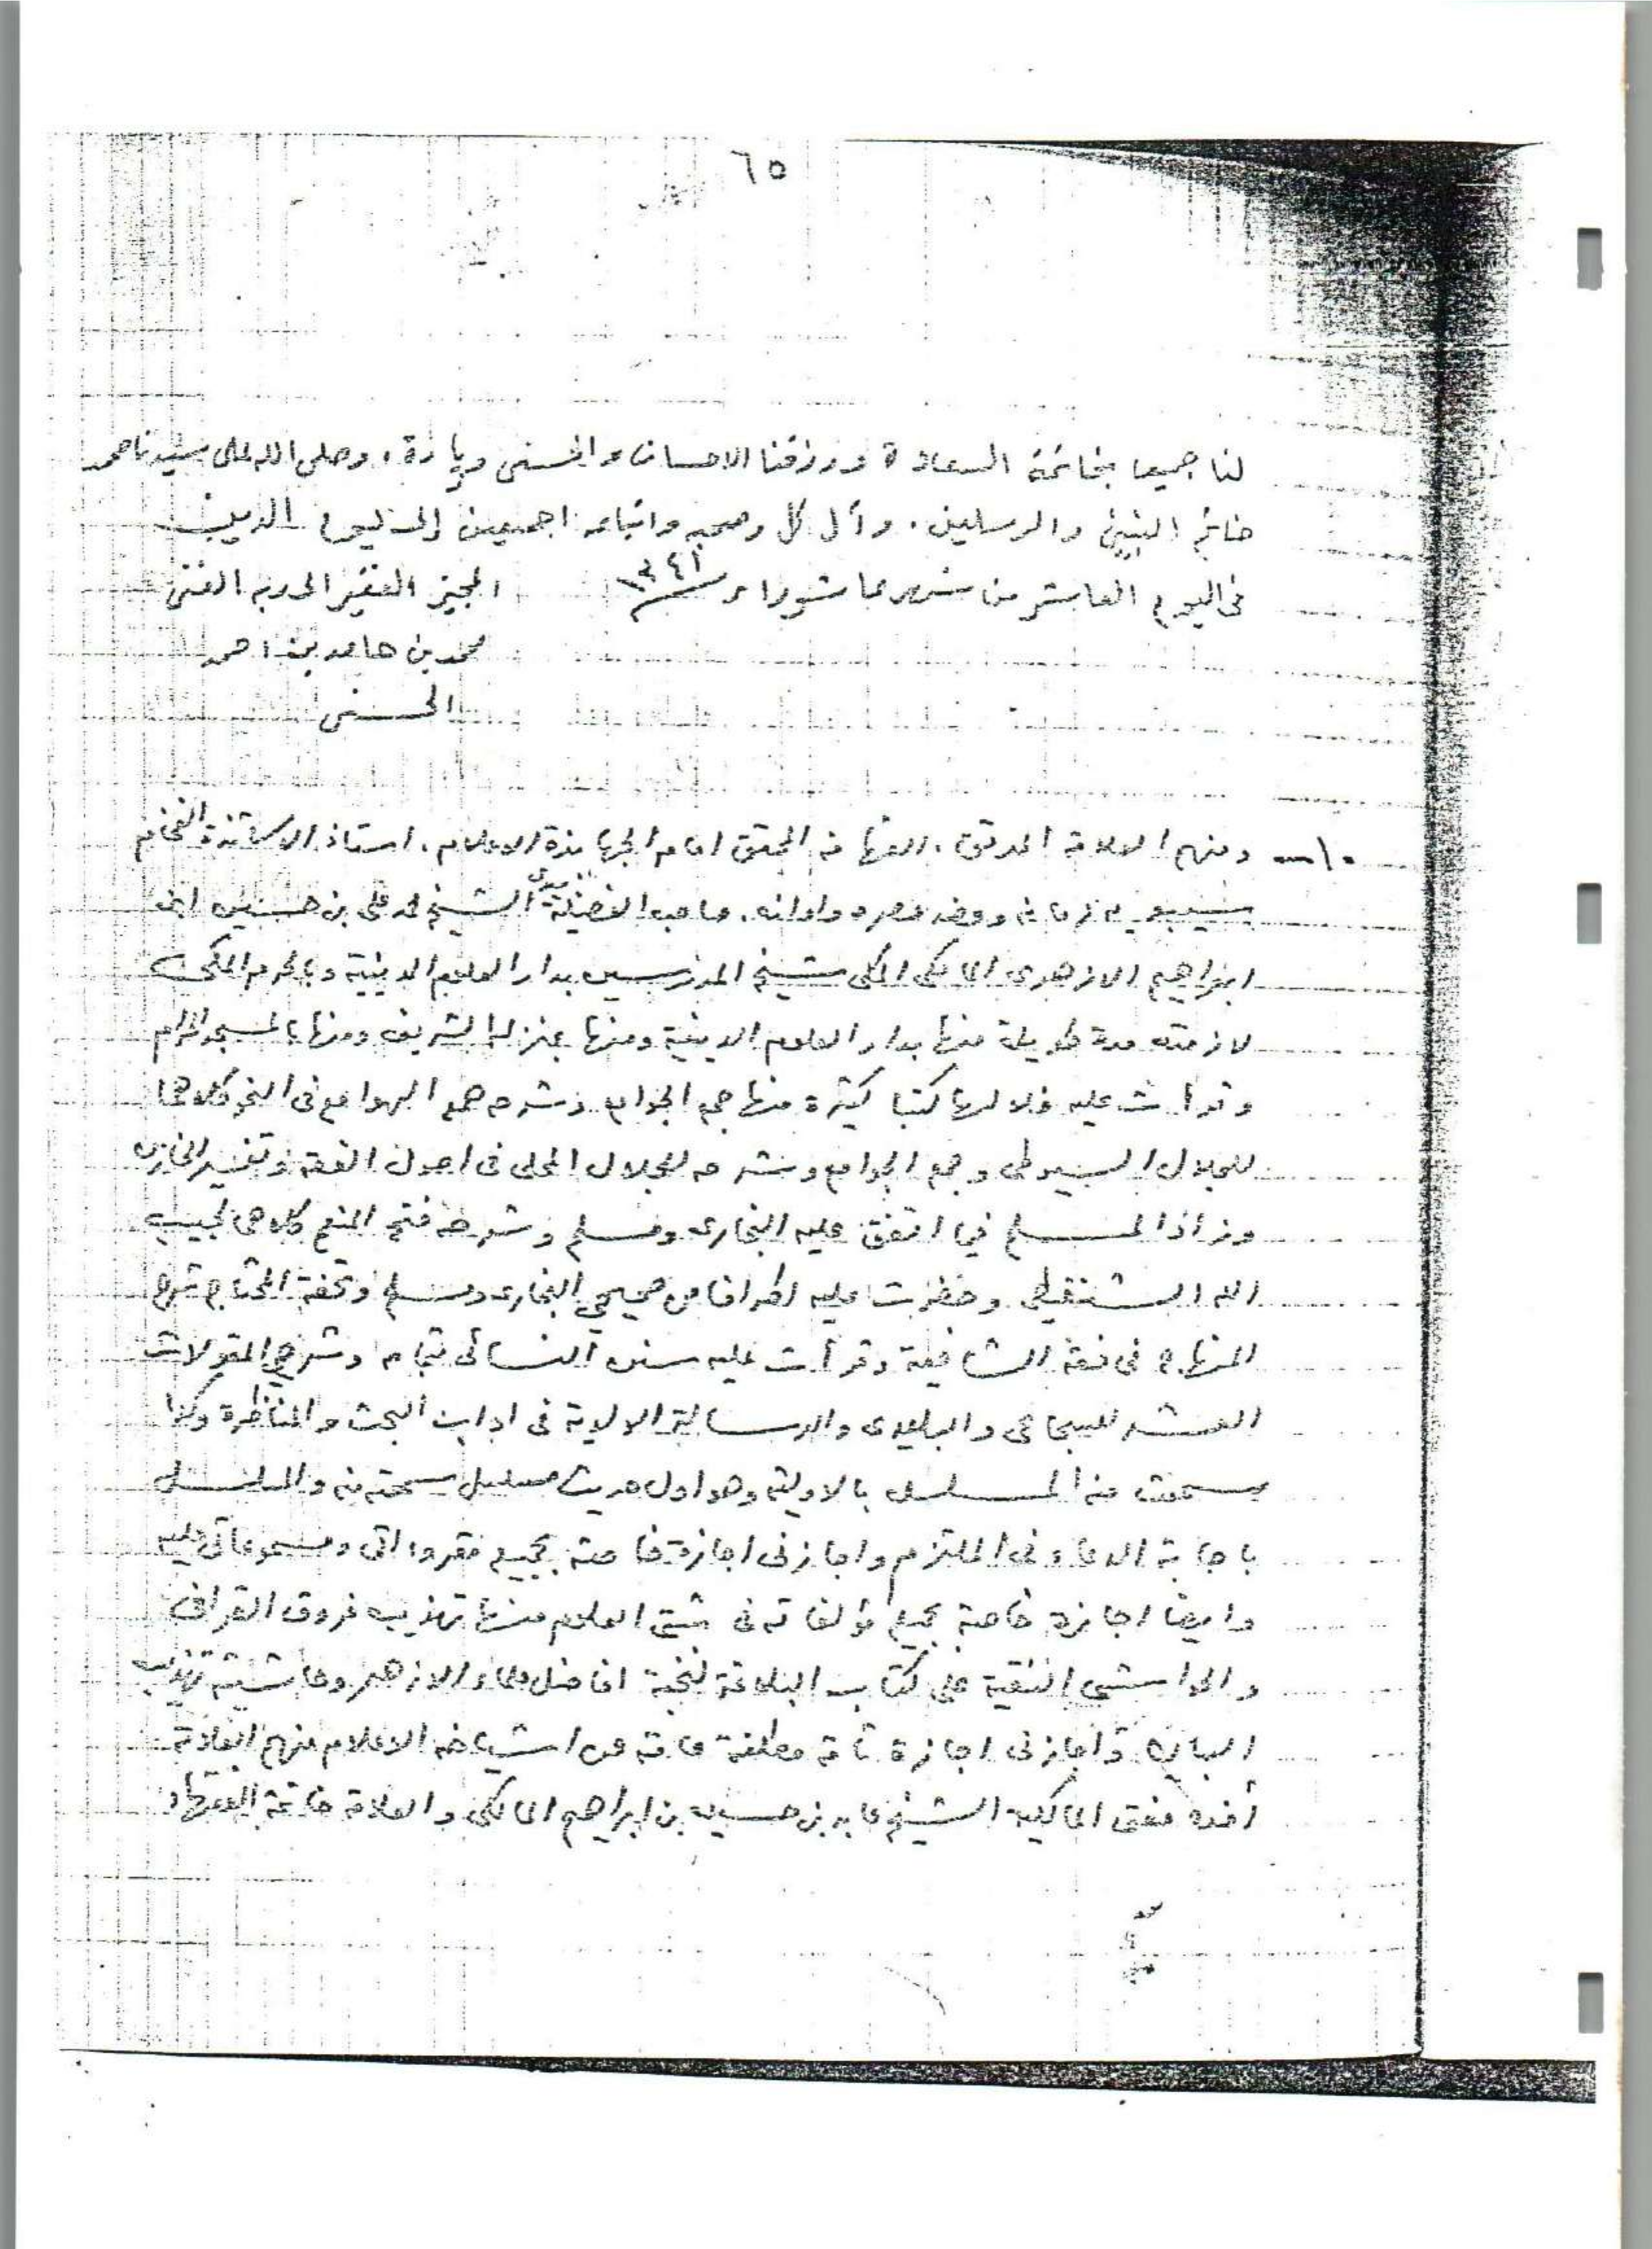 ٦٥
لنا جميعا بخاتمة السعادة ورزقنا الاحسان والحسنى وزيادة، وصلى الله على سيدنا محمد
خاتم النبيين والمرسلين. وآل كل وصحبه واتباعه اجمعين إلى يوم الدين
فى اليوم العاشر من شهر عاشوراء ١٣٤١ المجيز الفقير الى ربه الغنى
محمد بن حامد بن احمد
الحسنى
١٠ــ ومنهم العلامة المدقق، الفهامة المحقق امام الجهابذة الاعلام، استاذ الاساتذة الفخام
سيبويه زمانه وعضد عصره واوانه، صاحب الفضيلة الشيخ محمد على بن حسين ابن
ابراهيم الازهرى المالكى المكى شيخ المدرسين بدار العلوم الدينية وبالحرم المكى
لازمته مدة طويلة منها بدار العلوم الدينية ومنها بمنزله الشريف ومنها بالمسجد الحرام
وقرأت عليه خلالها كتبا كثيرة منها جمع الجوامع وشرحه همع الهوامع فى النحو كلاهما
للجلال السيوطى وجمع الجوامع وشرحه للجلال المحلى فى اصول الفقه وتفسير الخازن
وزاد المسلم فيما اتفق عليه البخارى ومسلم وشرحه فتح المنعم كلاهما لحبيب
الله الشنقيطى وحضرت عليه اطرافا من صحيحي البخارى ومسلم وتحفة المحتاج شرح
المنهاج فى فقه الشافعية وقرأت عليه سنن النسائى بتمامه وشرحي المقولات
العشر للسجاعى والبليدى والرسالة الولدية فى اداب البحث والمناظرة وكذا
سمعت منه المسلسل بالاولية وهو اول حديث مسلسل سمعته منه والمسلسل
باجابة الدعاء فى الملتزم واجازنى اجازة خاصة بجميع مقروءاتى ومسموعاتى عليه
وايضا اجازة خاصة بجميع مؤلفاته فى شتى العلوم منها تهذيب فروق القرافى
والحواشى النقية على كتاب البلاغة لنخبة افاضل علماء الازهر وحاشية تهذيب
البيان وأجازنى اجازة تامة مطلقة عامة عن اشياخه الاعلام منهم العلامة
أخوه مفتى المالكية الشيخ عابد بن حسين بن ابراهيم المالكى والعلامة خاتمة الفقهاء